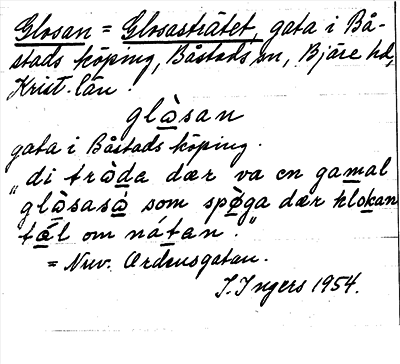 Glosan = Glosasträtet, gata i Bå-
stads köping, Båstads sn, Bjäre hd,
Krist. län.
glàsan
gata i Båstads köping.
"di tràda dær va en gamal
glàsaså som spøga dær klokan
tǽl om nátan."
= Nuv. Ordensgatan.
I. Ingers 1954.